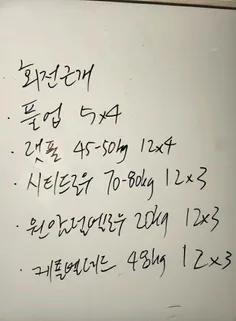 · 회전근개
· 풀업 5x4
· 랫풀 45-50kg 12x4
· 시티드로우 70-80kg 12x3
· 원암덤벨로우 20kg 12x3
· 케플벤니드 48kg 12x3